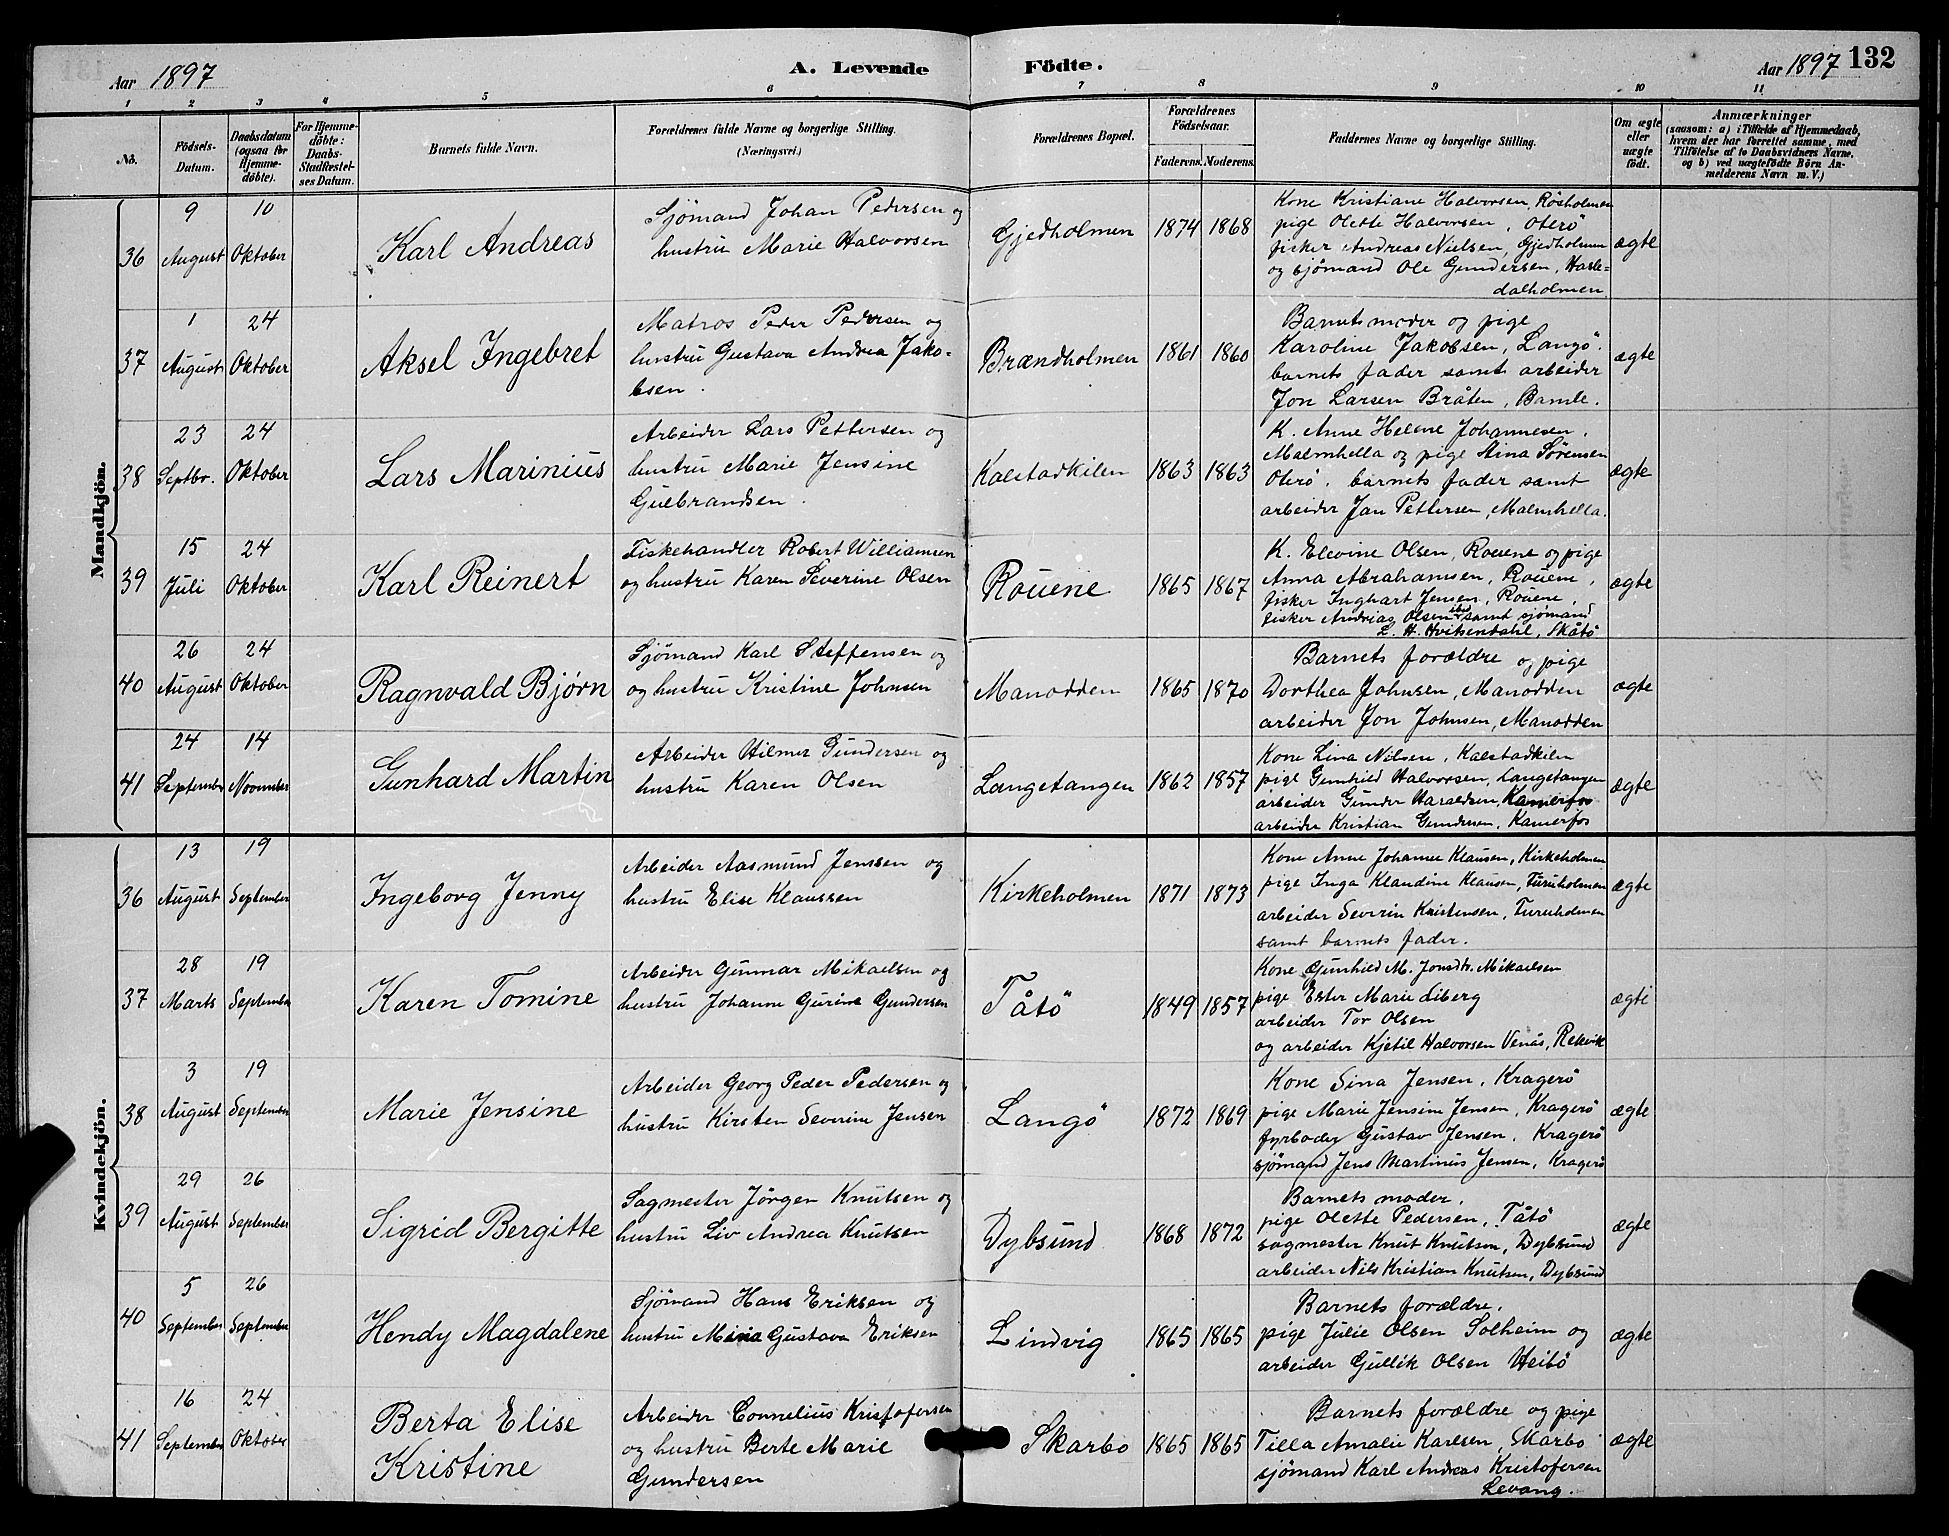 Aar 1897
A. Levende
Födte.
Aar 1897 132
1 2 3 4 5 6 7 8 9 10 11
No.
Födsels-
Datum.
Daabsdatum
(ogsaa for
Hjemme-
döbte).
For Hjemme-
döbte:
Daabs-
Stadfæstel-
ses Datum.
Barnets fulde Navn.
Forældrenes fulde Navne og borgerlige Stilling.
(Næringsvei.)
Forældrenes Bopæl.
Forældrenes
Födselsaar.
Faderens. Moderens.
Faddernes Navne og borgerlige Stilling.
Om ægte
eller
uægte
födt.
Anmærkninger
(saasom: a) i Tilfælde af Hjemmedaab,
hvem der har forrettet samme, med
Tilföielse af to Daabsvidners Navne,
og b) ved uægtefödte Börn An-
melderens Navn m. V.)
Mandkjön.
36
9
August
10
Oktober
Karl Andreas
Sjömand Johan Pedersen og
hustru Marie Halvorsen
Gjedholmen
1874 1868
Kone Kristiane Halvorsen Rösholmen
pige Olette Halvorsen, Oterö
fisker Andreas Nielsen, Gjedholmen
og sjömand Ole Gundersen, Hasle-
dalholmen.
ægte
37
1
August
24
Oktober
Aksel Ingebret
Matros Peder Pedersen og
hustru Gustava Andrea Jako-
bsen.
Brændholmen
1861 1860
Barnets moder og pige
Karoline Jakobsen, Langö.
barnets fader samt arbeider
Jon Larsen Bråten, Bamle.
ægte
38
23
Septbr.
24
Oktober
Lars Marinius
Arbeider Lars Pettersen og
hustru Marie Jensine
Gulbrandsen.
Kalstadkilen
1863 1863
K. Anne Helene Johannesen.
Malmhella og pige Stina Sørensen
Oterö. barnets fader samt
arbeider Jan Pettersen, Malmhella.
ægte
39
15
Juli
24
Oktober
Karl Reinert
Fiskehandler Robert Williamsen
og hustru Karen Severine Olsen
Rouene
1865 1867
K. Elevine Olsen, Rouene og pige
Anna Abrahamsen, Rouene,
fisker Inghart Jensen, Rouene,
fisker Andrias Olsen ibd samt sjömand
L. H. Hvitsendahl, Skåtö
ægte
40
26
August
24
Oktober
Ragnvald Bjørn
Sjömand Karl Steffensen og
og hustru Kristine Johnsen
Manodden
1865 1870
Barnets forældre og pige
Dorthea Johnsen, Manodden
arbeider Jon Johnsen, Manodden
ægte
41
24
September
14
November
Gunhard Martin
Arbeider Hilmer Gundersen og
hustru Karen Olsen
Langetangen
1862 1857
Kone Lina Nilsen, Kalstadkilen
pige Gunhild Halvorsen, Langetangen
arbeider Gunder Haraldsen, Kamerfos
arbeider Kristian Gundersen, Kamerfos
ægte
Kvindekjön.
36
13
August
19
September
Ingeborg Jenny
Arbeider Aasmund Jenssen og
hustru Elise Klaussen
Kirkeholmen
1871 1873
Kone Anne Johanne Klausen, Kirkeholmen
pige Inga Klandine Klausen, Furuholmen
arbeider Severin Kristensen, Furuholmen
samt barnets fader.
ægte
37
28
Marts
19
September
Karen Tomine
Arbeider Gunnar Mikaelsen og
hustru Johanne Gurine Gundersen
Tåtö
1849 1857
Kone Gunhild M. Jonsdtr. Mikaelsen
pige Ester Marie Siberg
arbeider Tor Olsen
og arbeider Kjetil Halvorsen Venås, Rekevik
ægte
38
3
August
19
September
Marie Jensine
Arbeider Georg Peder Pedersen og
hustru Kirsten Severine Jensen
Langö
1872 1869
Kone Sina Jensen, Kragerö
pige Marie Jensine Jensen, Kragerö
fyrböder Gustav Jensen, Kragerö
sjömand Jens Martinus Jensen, Kragerö
ægte
39
29
August
26
September
Sigrid Bergitte
Sagmester Jörgen Knutsen og
hustru Liv Andrea Knutsen
Dybsund
1868 1872
Barnets moder.
pige Olette Pedersen, Tåtö
sagmester Knut Knutsen, Dybsund
arbeider Nils Kristian Knutsen, Dybsund
ægte
40
5
September
26
September
Hendy Magdalene
Sjömand Hans Eriksen og
hustru Mina Gustava Eriksen
Lindvig
1865 1865
Barnets forældre.
pige Julie Olsen Solheim og
arbeider Gullik Olsen Heibö
ægte
41
16
September
24
Oktober
Berta Elise
Kristine
Arbeider Cornelius Kristofersen
og hustru Berte Marie
Gundersen
Skarbo
1865 1865
Barnets forældre og pige
Tilla Amalie Karlsen, Skarbo
sjömand Karl Andreas Kristofersen
Levang.
ægte